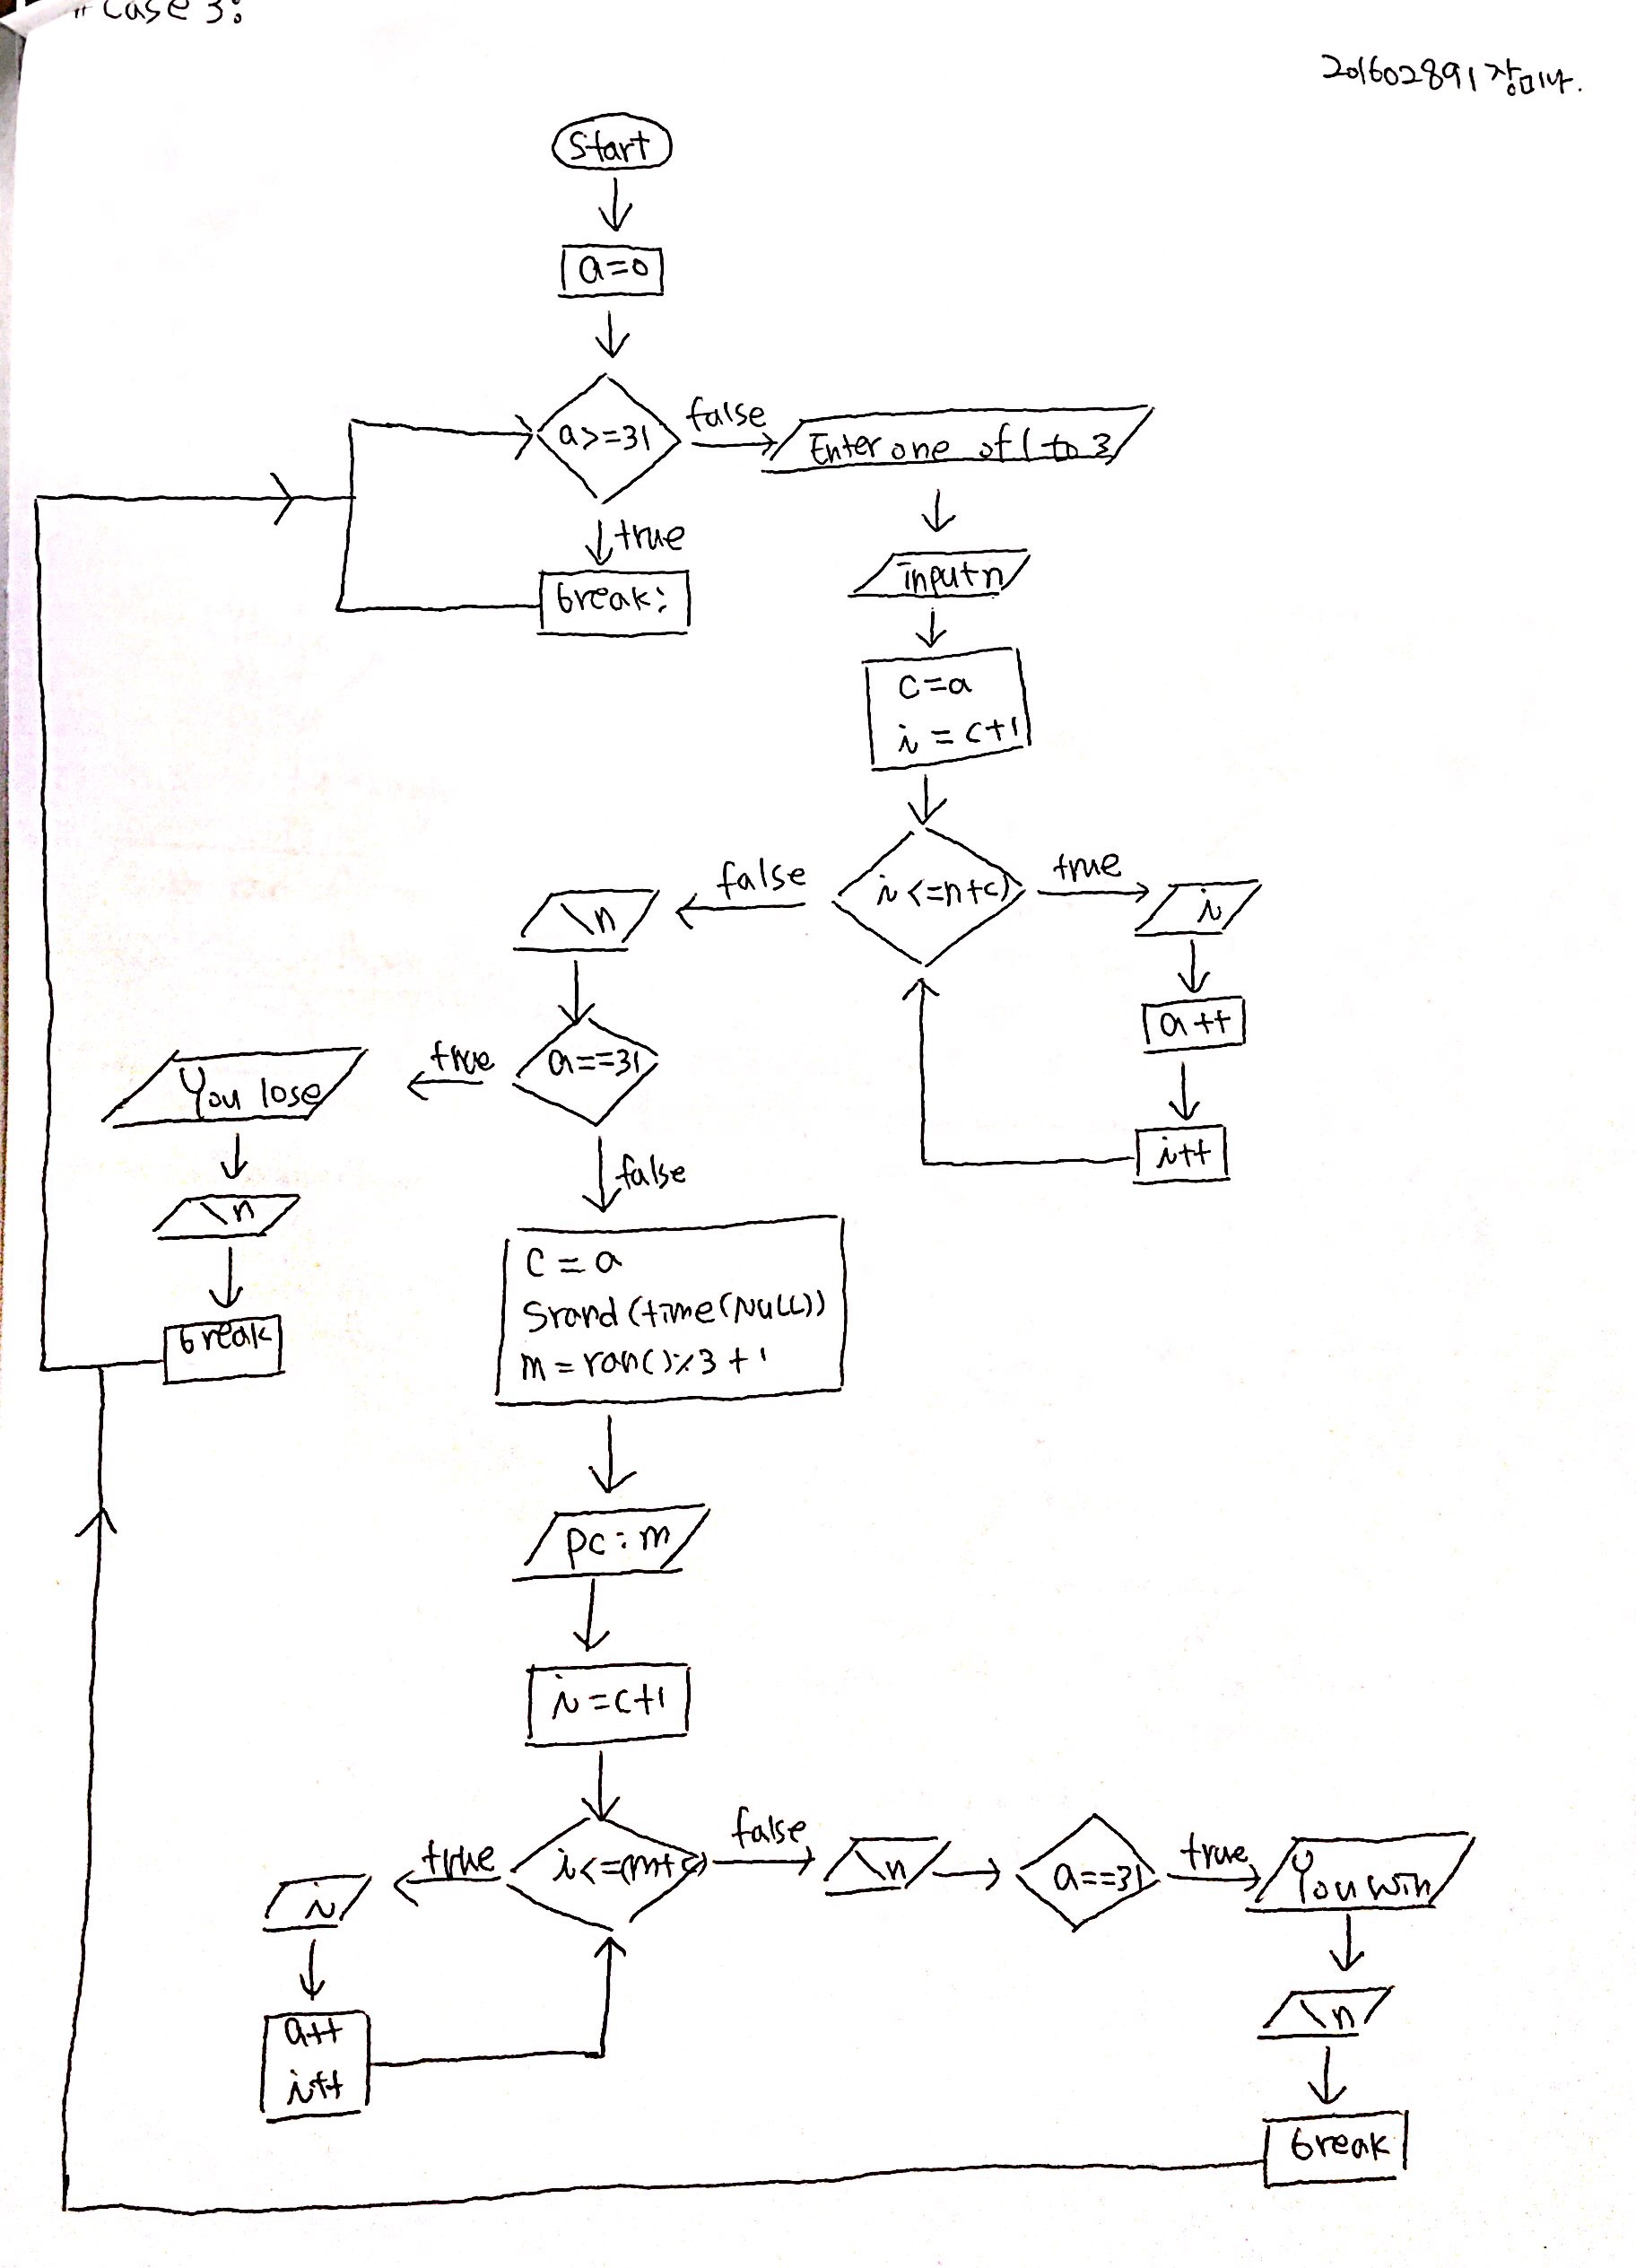 # Case 3:
201602891 장미나.
Start
a=0
a>=31
false
Enter one of 1 to 3
true
break;
input n
c=a
i=c+1
i<=n+c)
true
i
a++
i++
false
\n
a==31
true
You lose
\n
break
false
c=a
Srand(time(NULL))
m=ran()%3+1
pc:m
i=c+1
i<=(m+c)
true
i
a++
i++
false
\n
a==31
true
You win
\n
break